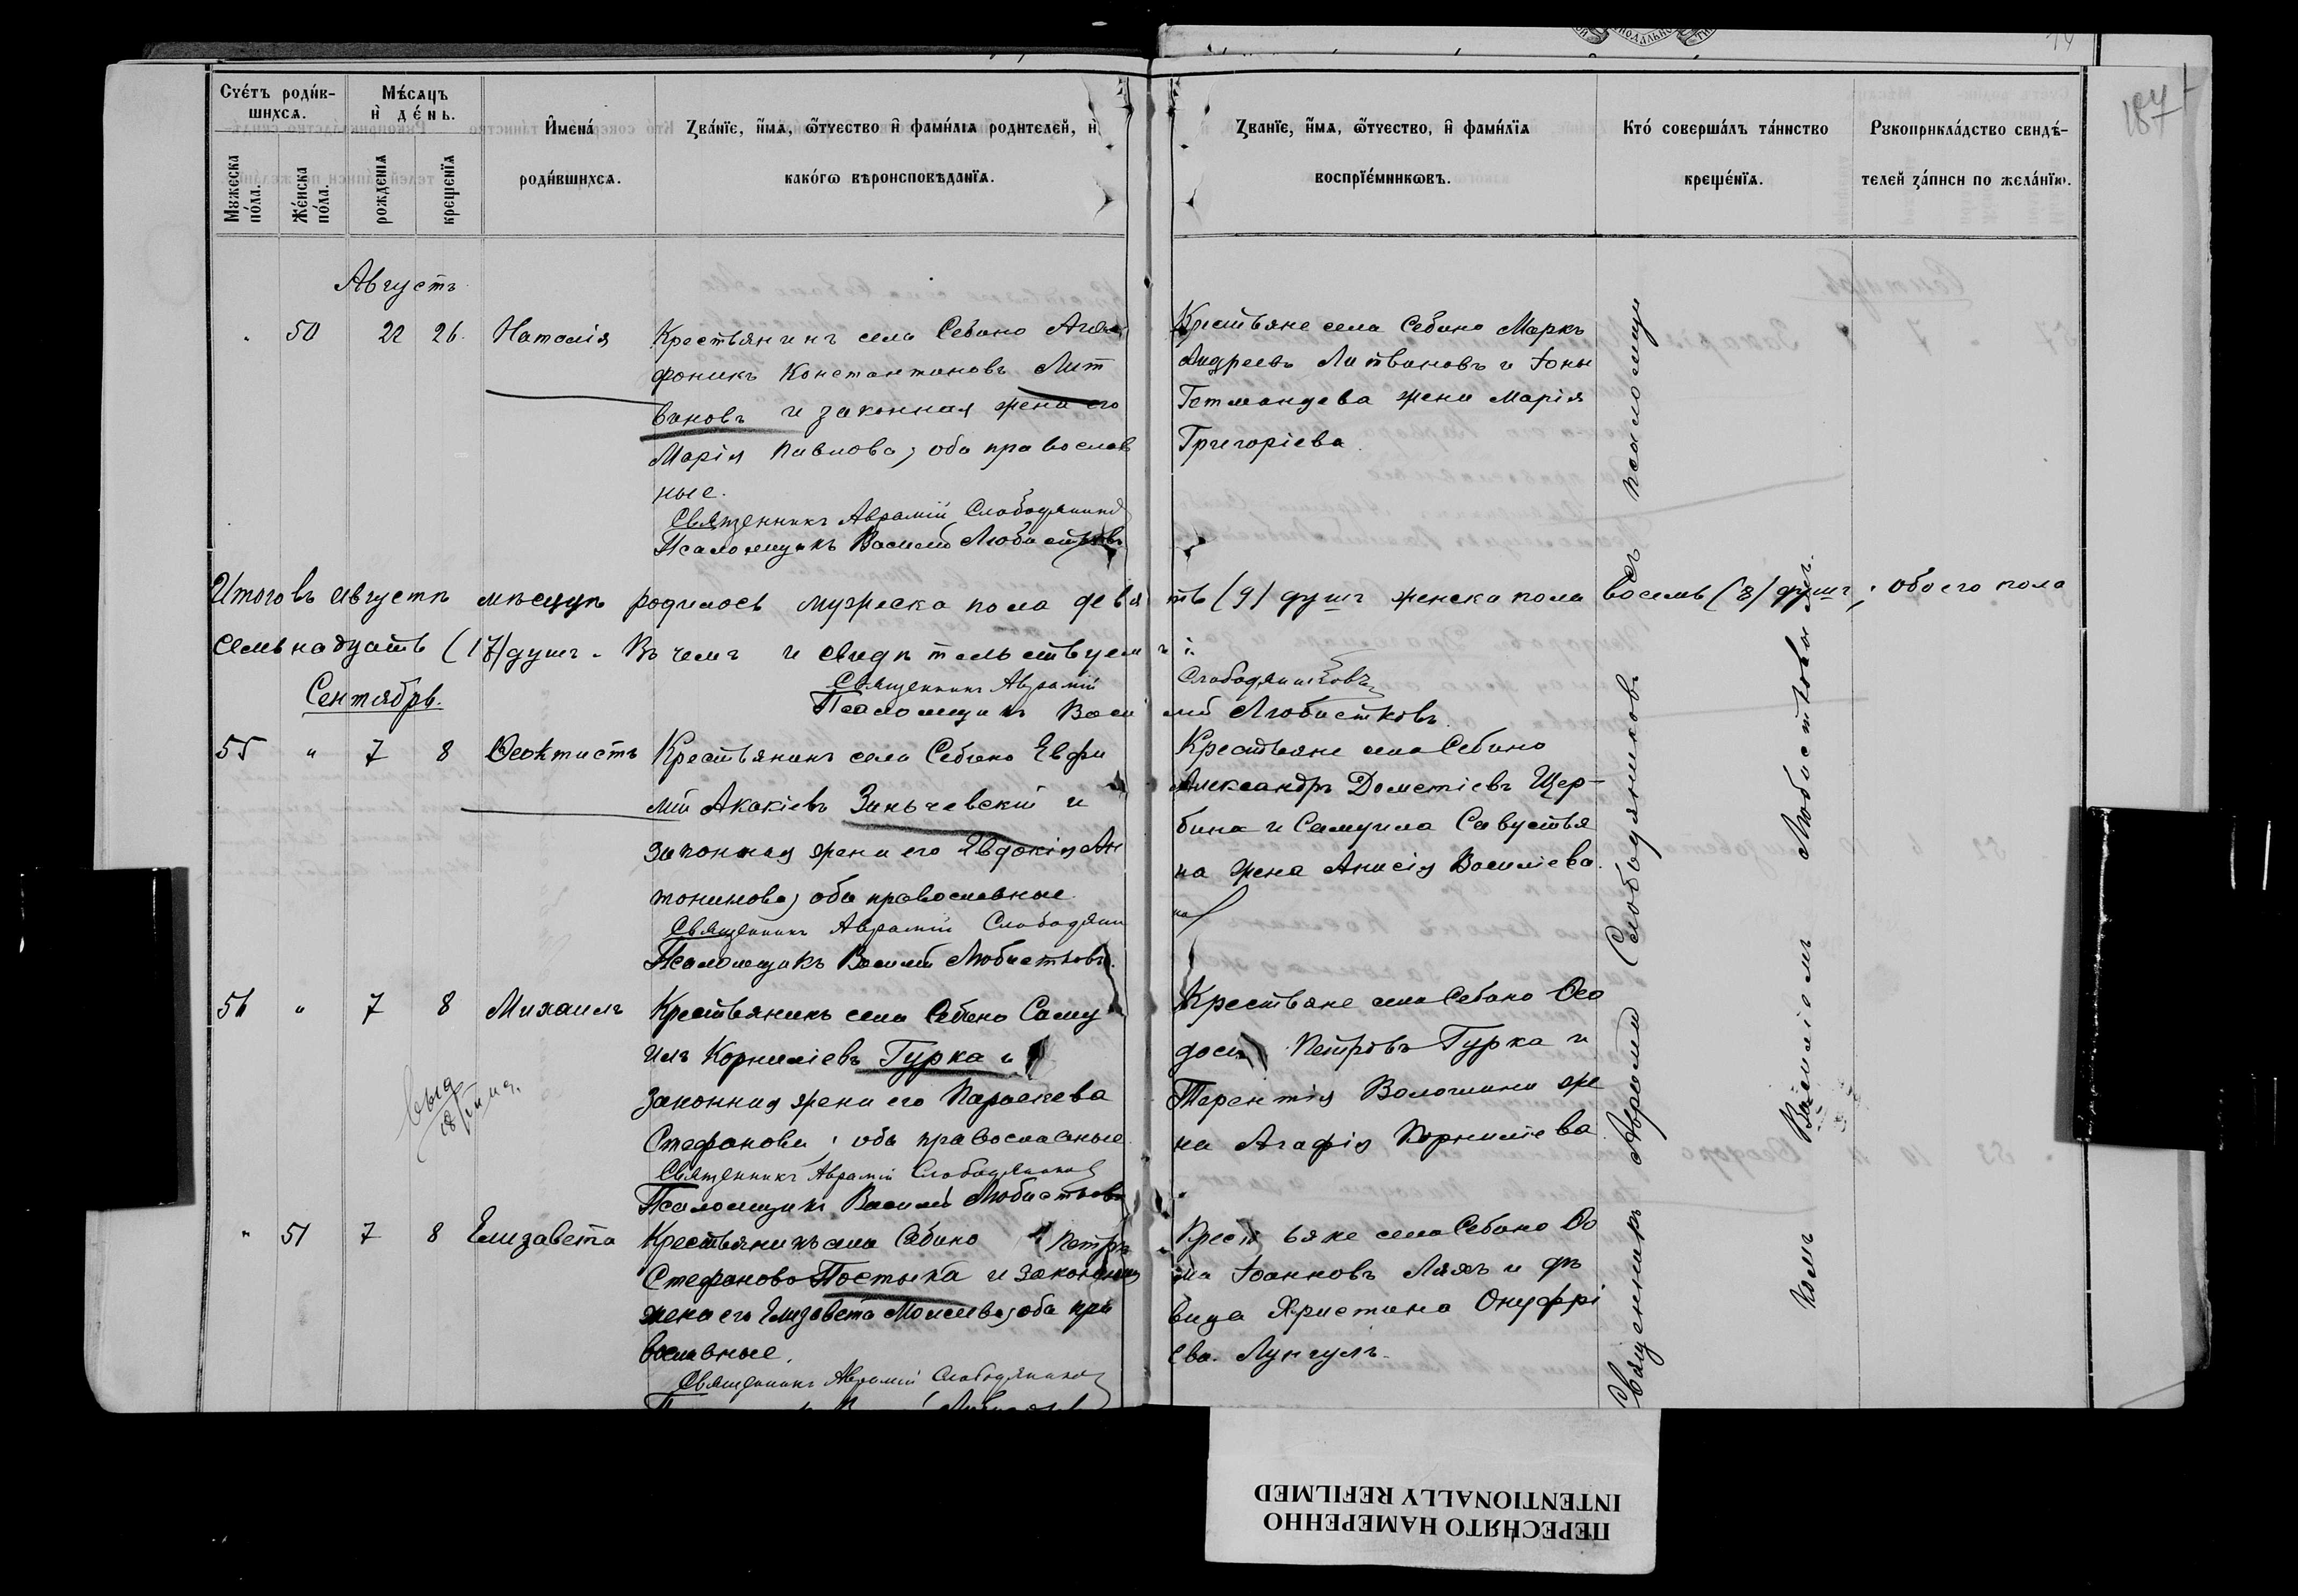 187
Счетъ родив-
шихся.
Мѣсяцъ
и день.
Мужеска
пола.
Женска
пола.
рожденія
крещенія
Имена
родившихся.
Званіе, имя, отчество и фамилія родителей, и
какого вѣроисповѣданія.
Званіе, имя, отчество, и фамилія
воспріемниковъ.
Кто совершалъ таинство
крещенія.
Рукоприкладство свидѣ-
телей записи по желанію.
Августъ
" 50 22 26. Наталія
Крестьянинъ села Себино Ага
фоникъ Константиновъ Лит
вановъ и законная жена его
Марія Павлова; оба православ
ные.
Священникъ Аврамій Слободяников
Псаломщикъ Василій Любистковъ
Крестьяне села Себино Маркъ
Андреевъ Литвановъ и Іоны
Гетманцева жена Марія
Григоріева.
Итого въ августѣ мѣсяцѣ родилось мужеска пола девять (9) душъ женска пола восемь (8) душъ, обоего пола
семьнадцать (17) душъ. Въ чемъ и свидѣтельствуемъ:
Священникъ Аврамій Слободяниковъ
Псаломщикъ Василій Любистковъ.
Сентябрь.
55 " 7 8 Ѳеоктистъ
Крестьянинъ села Себино Евфи
мій Акакіевъ Зиньчевскій и
законная жена его Евдокія Ан
тонинова; оба православные.
Священникъ Аврамій Слободяни
Псаломщикъ Василій Любистковъ.
Крестьяне села Себино
Александръ Дометіевъ Щер-
бина и Самуила Савустья
на жена Анисія Василіева.
56 " 7 8 Михаилъ
Крестьянинъ села Себино Саму
илъ Корниліевъ Гурка и
законная жена его Параскева
Стефанова; оба православные.
Священникъ Аврамій Слободяников
Псаломщикъ Василій Любистковъ
Крестьяне села Себино Ѳео
досій Петровъ Гурка и
Терентія Волошина же
на Агафія Корниліева
" 51 7 8 Елизавета
Крестьянинъ села Себино Петръ
Стефановъ Постыка и законная
жена его Елизавета Моисеева; оба пра
вославные.
Священникъ Аврамій Слободяников
Крестьяне села Себино Ѳо
ма Іоанновъ Ляхъ и дѣ
вица Христина Онуфрі
ева Лунгулъ.
Священникъ Аврамій Слободяниковъ съ псаломщи
комъ Василіемъ Любистковымъ.
ПЕРЕСНЯТО НАМЕРЕННО
INTENTIONALLY REFILMED